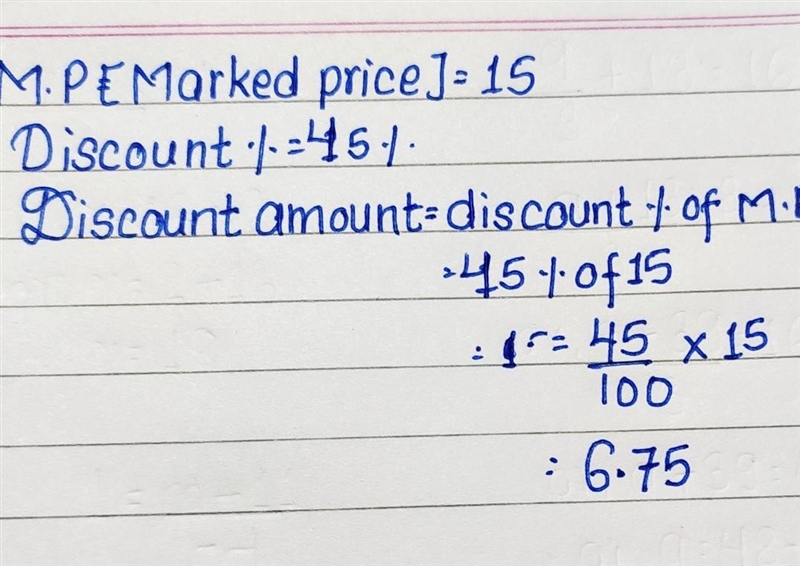 M.P[Marked price]=15
Discount %=45%
Discount amount=discount % of M.P
=45% of 15
= = 45/100 x 15
= 6.75